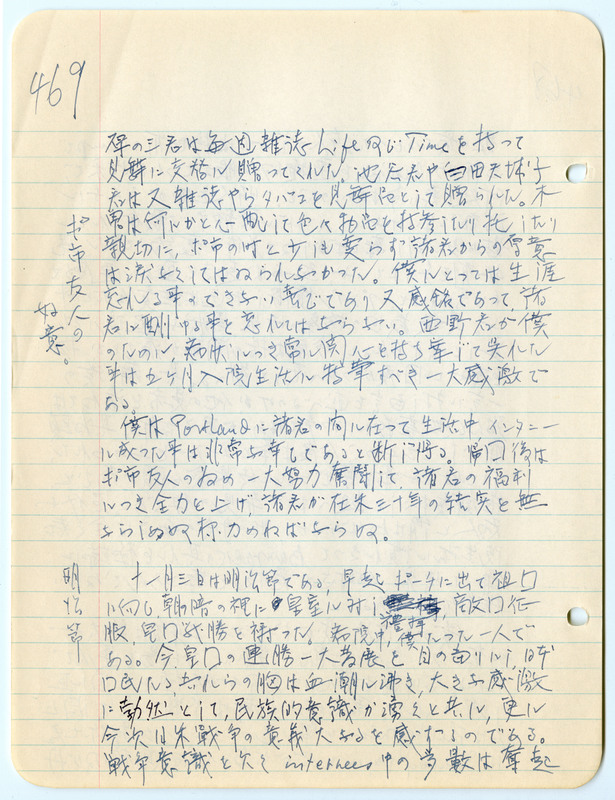 469
ポ市友人の
好意。
の三君は毎週雑誌 Life 及び Time を持って
見舞に交替に贈ってくれた。池 君や 田 君
君は又雑誌やらタバコを見舞品として贈られた。木
君は何にかと心配して色々物品を持参したり 托したり
親切に、ポ市の時と少しも変らず諸君からの厚意
は涙なくしてはおられなかった。僕にとっては生涯
忘れる事のできない喜びであり又感銘であって、諸
君に酬ゆる事を忘れてはならない。西野君が僕
のために、病状につき常に関心を持ち 呉れた
事は五ヶ月入院生活に特筆すべき一大感激で
ある。
僕は Portland に諸君の内に在って生活中インターニー
に成った事は非常な幸であると断じ得る。帰国後は
ポ市友人の為め一大努力奮闘して、諸君の福利
につき全力を上げ、諸君が在米三十年の結実を無
ならしめぬ様力めねばならぬ。
明治節
十一月三日は明治節である。早起ポーチに出て祖国
に向し、朝暗の裡に皇室に対し 禮拝、敵国征
服、皇国戦勝を祷った。病院中、僕たった一人で
ある。今、皇国の連勝一大発展を目の当りにし、日本
国民たる、われらの胸は血潮に沸き、大きな感激
に勃然として、民族的意識が湧くと共に、更に
今次日米戦争の意義大なるを感ずるのである。
戦争意識を欠く internees 中の多数は奮起